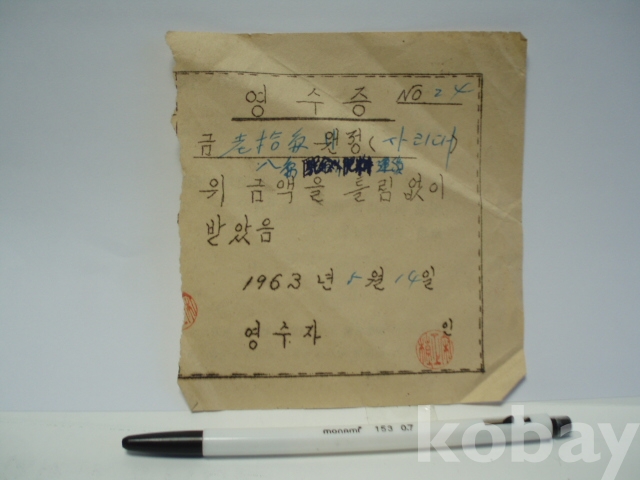 영 수 증 NO 24
금 壱拾 원정(사리다)
위 금액을 틀림없이
받았음
1963 년 5월 14일
영수자 인
monami 153 0.7
kobay